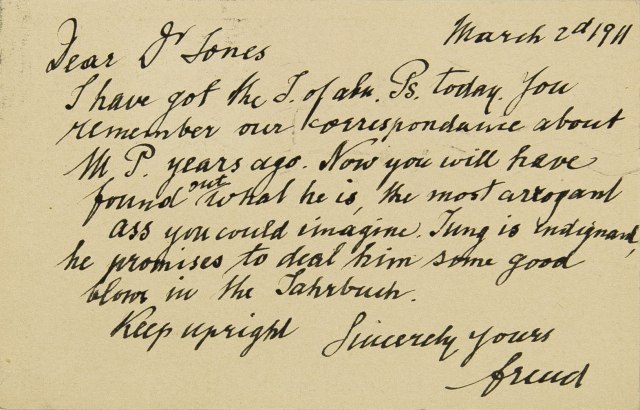 March 2d 1911
Dear Dr Jones
I have got the J. of abn. Ps. today. You
remember our correspondance about
M. P. years ago. Now you will have
found out what he is, the most arrogant
ass you could imagine. Jung is indignant,
he promises to deal him some good
blows in the Jahrbuch.
Keep upright
Sincerely yours
Freud